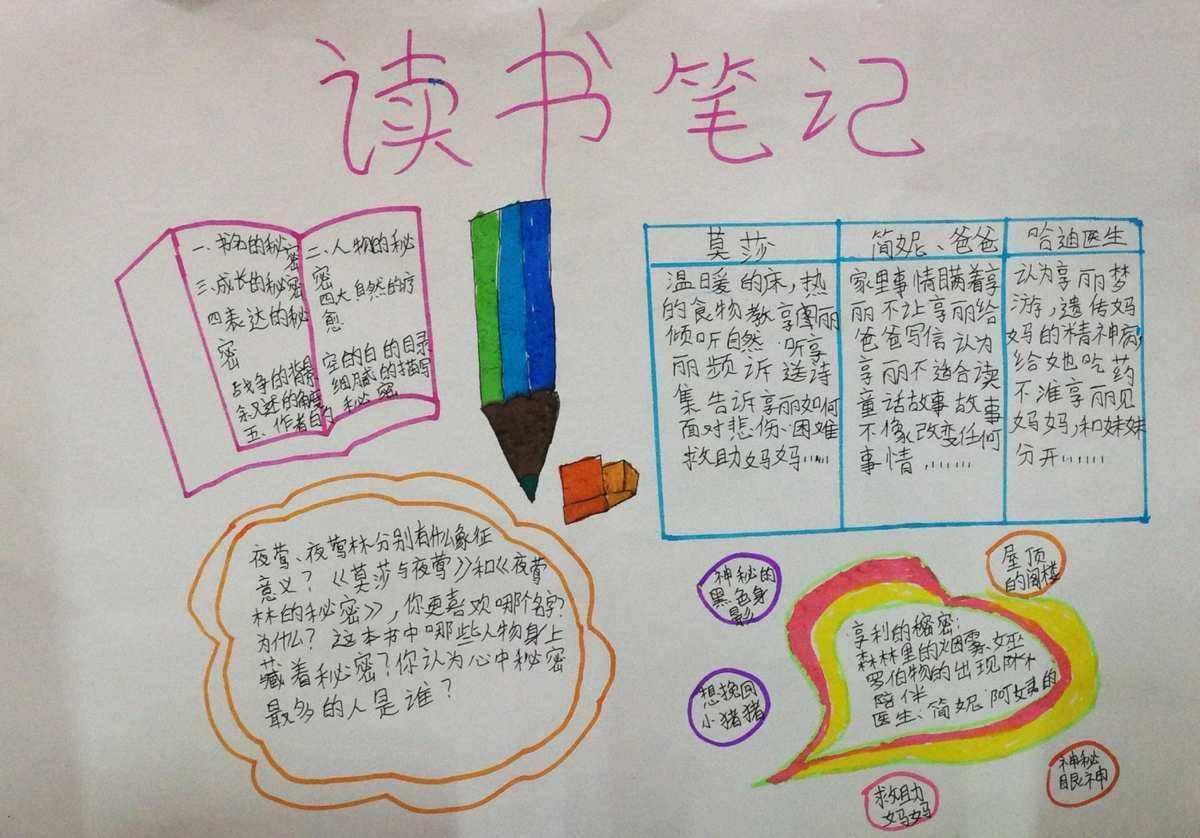 读书笔记
一、书名的秘密
三、成长的秘密
四表达的秘密
战争的背景
五、作者的
二、人物的秘密
四大自然的疗愈
空的白的目录
细腻的描写
秘密
莫莎
温暖的床，热
的食物教享
倾听自然 听享
丽倾诉 送诗
集 告诉享丽如何
面对悲伤、困难
救助妈妈……
简妮、爸爸
家里事情瞒着享
丽不让享丽给
爸爸写信 认为
享丽不适合读
童话故事 故事
不像改变任何
事情………
哈迪医生
认为享丽梦
游，遗传妈
妈的精神病
给她吃药
不准享丽见
妈妈，和妹妹
分开……
夜莺、夜莺林分别有什么象征
意义？《莫莎与夜莺》和《夜莺
林的秘密》，你更喜欢哪个名字？
为什么？这本书中哪些人物身上
藏着秘密？你认为心中秘密
最多的人是谁？
神秘的
黑色身
影
屋顶
的阁楼
享利的秘密：
森林里的烟雾、
罗伯物的出现
陪伴
医生、简妮 阿
的
想挽回
小猪猪
救助
妈妈
神秘
眼神